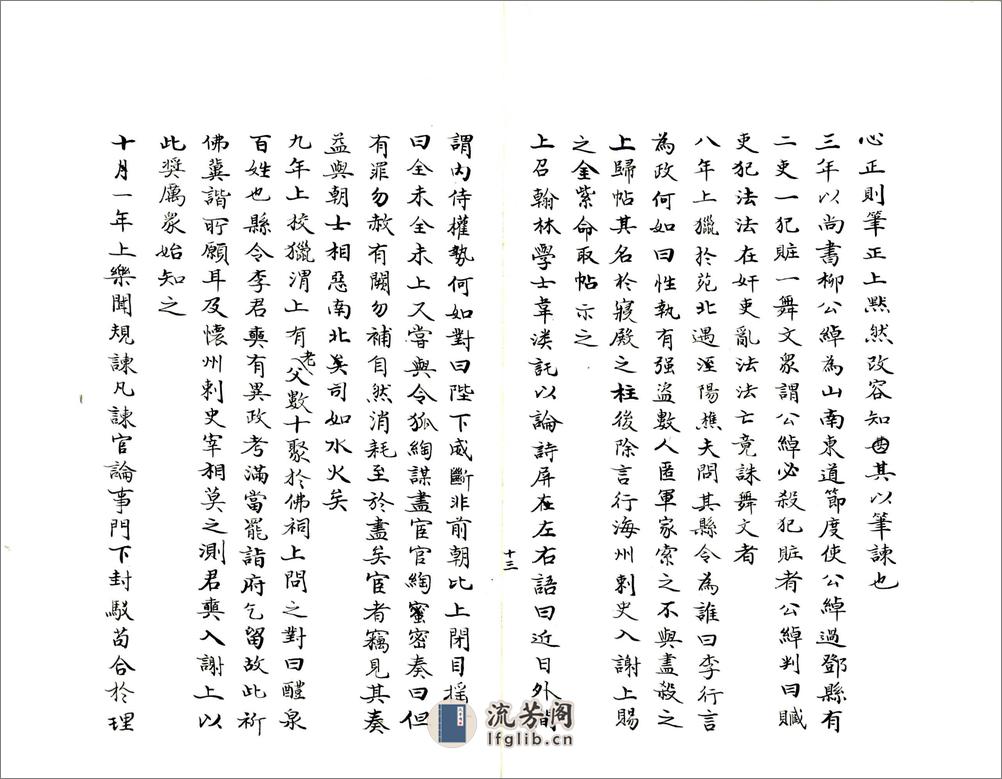 心正則筆正上黙然改容知酉其以筆諫也
三年以尚書柳公綽為山南東道節度使公綽過鄧縣有
二吏一犯賍一舞文眾謂公綽必殺犯賍者公綽判曰贓
吏犯法法在奸吏亂法法亡竟誅舞文者
八年上獵於苑北遇涇陽樵夫問其縣令為誰曰李行言
為政何如曰性執有强盜數人匿軍家索之不與盡殺之
上歸帖其名於寢殿之柱後除言行海州刺史入謝上賜
之金紫命取帖示之
上召翰林學士韋澳託以論詩屏在左右語曰近日外間
十三
謂內侍權勢何如對曰陛下威斷非前朝比上閉目搖
曰全未全未上又嘗與令狐綯謀盡宦官綯蜜密奏曰但
有罪勿赦有闕勿補自然消耗至於盡矣宦者竊見其奏
益與朝士相惡南北矣司如水火矣
九年上校獵渭上有老父數十聚於佛祠上問之對曰醴泉
百姓也縣令李君奭有異政考滿當罷詣府乞留故此祈
佛冀諧所願耳及懷州刺史宰相莫之測君奭入謝上以
此奬厲眾始知之
十月一年上樂聞規諫凡諫官論事門下封駁苟合於理
流芳阁
lfglib.cn